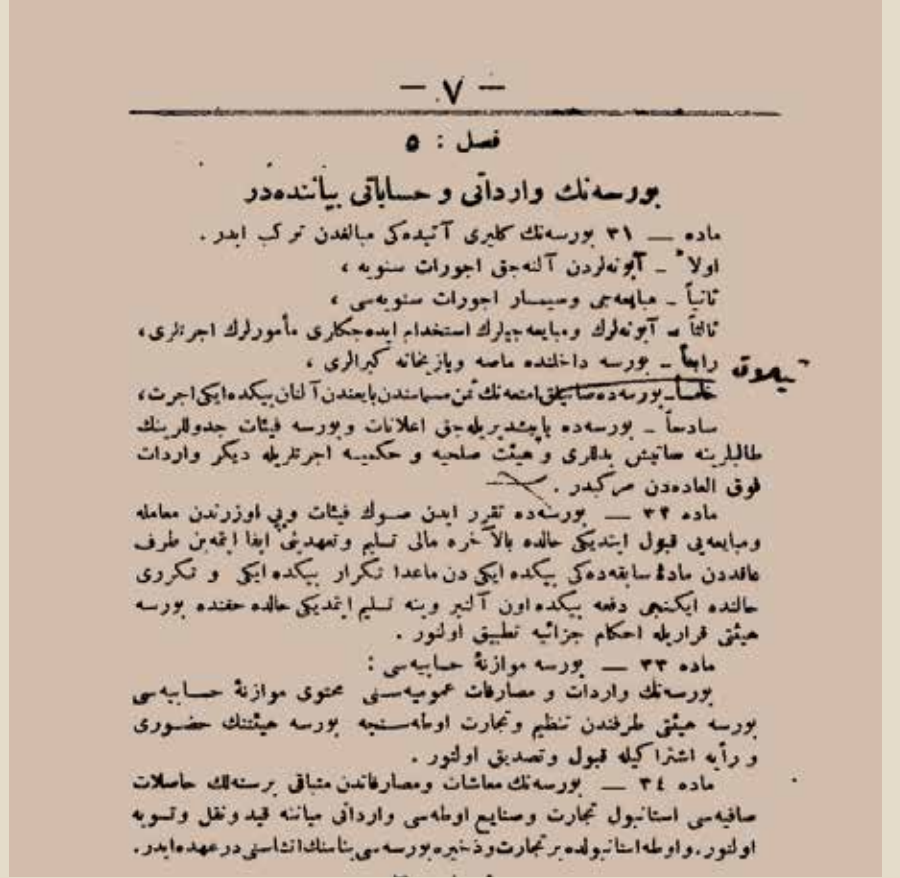 — ٧ —
فصل : ٥
بورسه‌نك وارداتی و حساباتی بیاننده‌در
ماده — ٣١ بورسه‌نك كلیری آتیده‌كی مبالغدن تركب ایدر .
اولاً ـ آبونه‌لردن آلنه‌جق اجورات سنویه ،
ثانیاً ـ مبایعه‌جی وسیمسار اجورات سنویه‌سی ،
ثالثاً ـ آبونه‌لرك ومبایعه‌جیلرك استخدام ایده‌جكلری مأمورلرك اجرتلری ،
رابعاً ـ بورسه داخلنده ماصه ویازیخانه كیرالری ،
خامساً ـ بورسه‌ده صاتیلان امتعه‌نك ثمن مسماسندن بایعندن آلنان بیكده ایكی اجرت ،
سادساً ـ بورسه‌ده یاپیشدیریله‌جق اعلانات وبورسه فیئات جدوللرینك
طالبلرینه صاتیش بدللری و هیئت صلحیه و حكمیه اجرتلریله دیكر واردات
فوق العاده‌دن مركبدر .
ماده ٣٢ — بورسه‌ده تقرر ایدن صوك فیئات ویی اوزرندن معامله
ومبایعه‌یی قبول ایتدیكی حالده بالآخره مالی تسلیم وتعهدینی ایفا ایتمه‌ین طرف
عاقددن مادهٔ سابقه‌ده‌كی بیكده ایكی دن ماعدا تكرار بیكده ایكی و تكرری
حالنده ایكنجی دفعه بیكده اون آلنیر وینه تسلیم ایتمدیكی حالده حقنده بورسه
هیئتی قراریله احكام جزائیه تطبیق اولنور .
ماده ٣٣ — بورسه موازنهٔ حسابیه‌سی :
بورسه‌نك واردات و مصارفات عمومیه‌سنی محتوی موازنهٔ حسابیه‌سی
بورسه هیئتی طرفندن تنظیم وتجارت اوطه‌سنجه بورسه هیئتنك حضوری
و رأیه اشتراكیله قبول وتصدیق اولنور .
ماده ٣٤ — بورسه‌نك معاشات ومصارفاتدن متباقی برسنه‌لك حاصلات
صافیه‌سی استانبول تجارت وصنایع اوطه‌سی وارداتی میاننه قید ونقل وتسویه
اولنور. واوطه استانبولده بر تجارت وذخیره بورسه‌سی بناسنك انشاسنی درعهده ایدر.